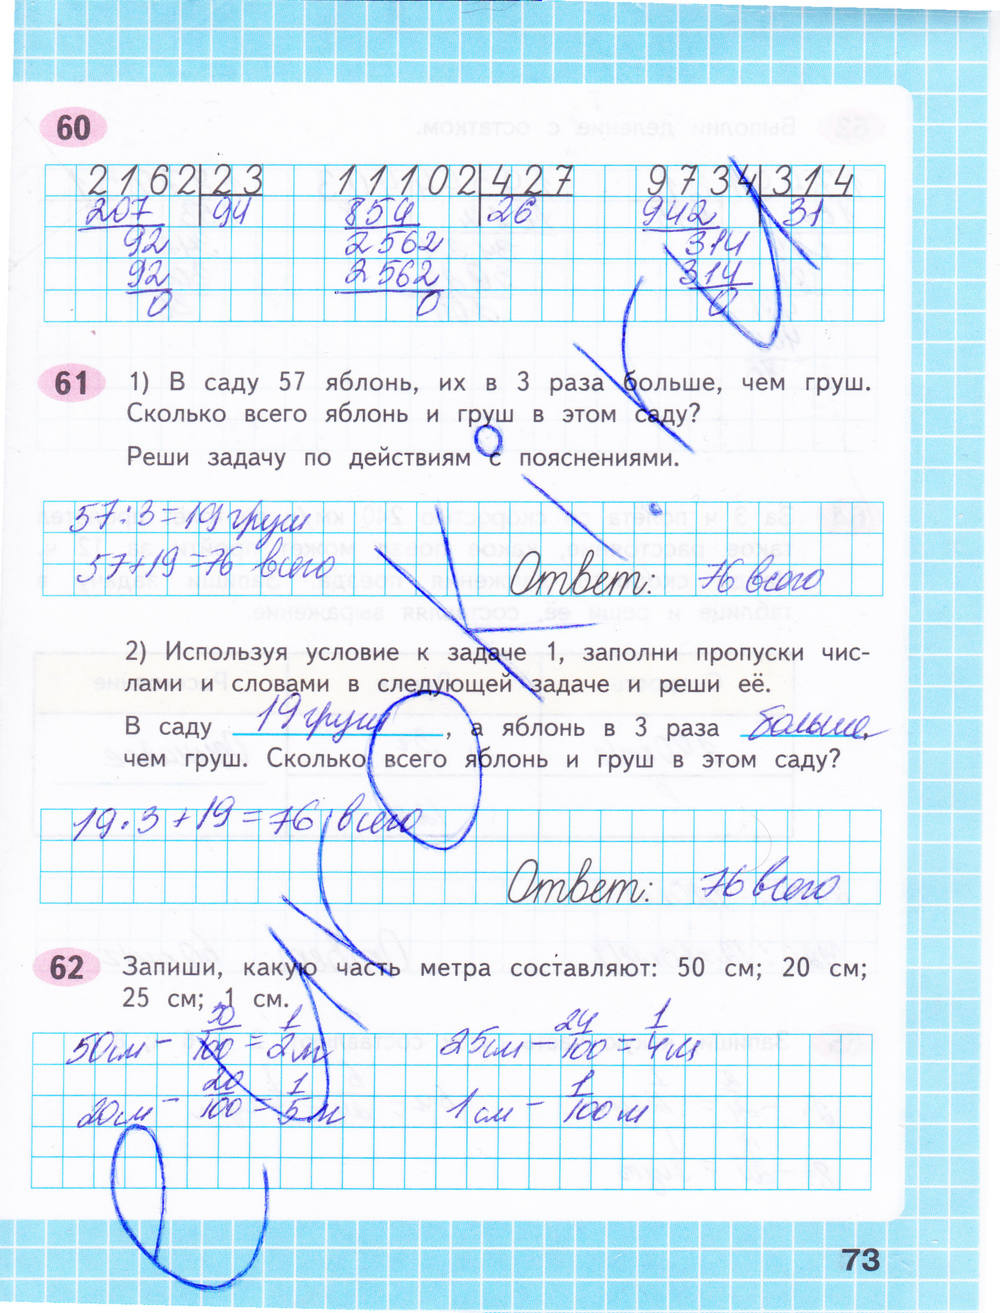 60
2162 23 11102 427 9734 314
207 94 854 26 942 31
92 2562 314
92 2562 314
0 0 0
61 1) В саду 57 яблонь, их в 3 раза больше, чем груш.
Сколько всего яблонь и груш в этом саду?
Реши задачу по действиям с пояснениями.
57:3=19 груш
57+19=76 всего
Ответ: 76 всего
2) Используя условие к задаче 1, заполни пропуски чис-
лами и словами в следующей задаче и реши её.
В саду 19 груш, а яблонь в 3 раза больше,
чем груш. Сколько всего яблонь и груш в этом саду?
19·3+19=76 всего
Ответ: 76 всего
62 Запиши, какую часть метра составляют: 50 см; 20 см;
25 см; 1 см.
50см - 50/100 = 1/2 м 25см - 24/100 = 1/4 м
20см - 20/100 = 1/5 м 1см - 1/100 м
73